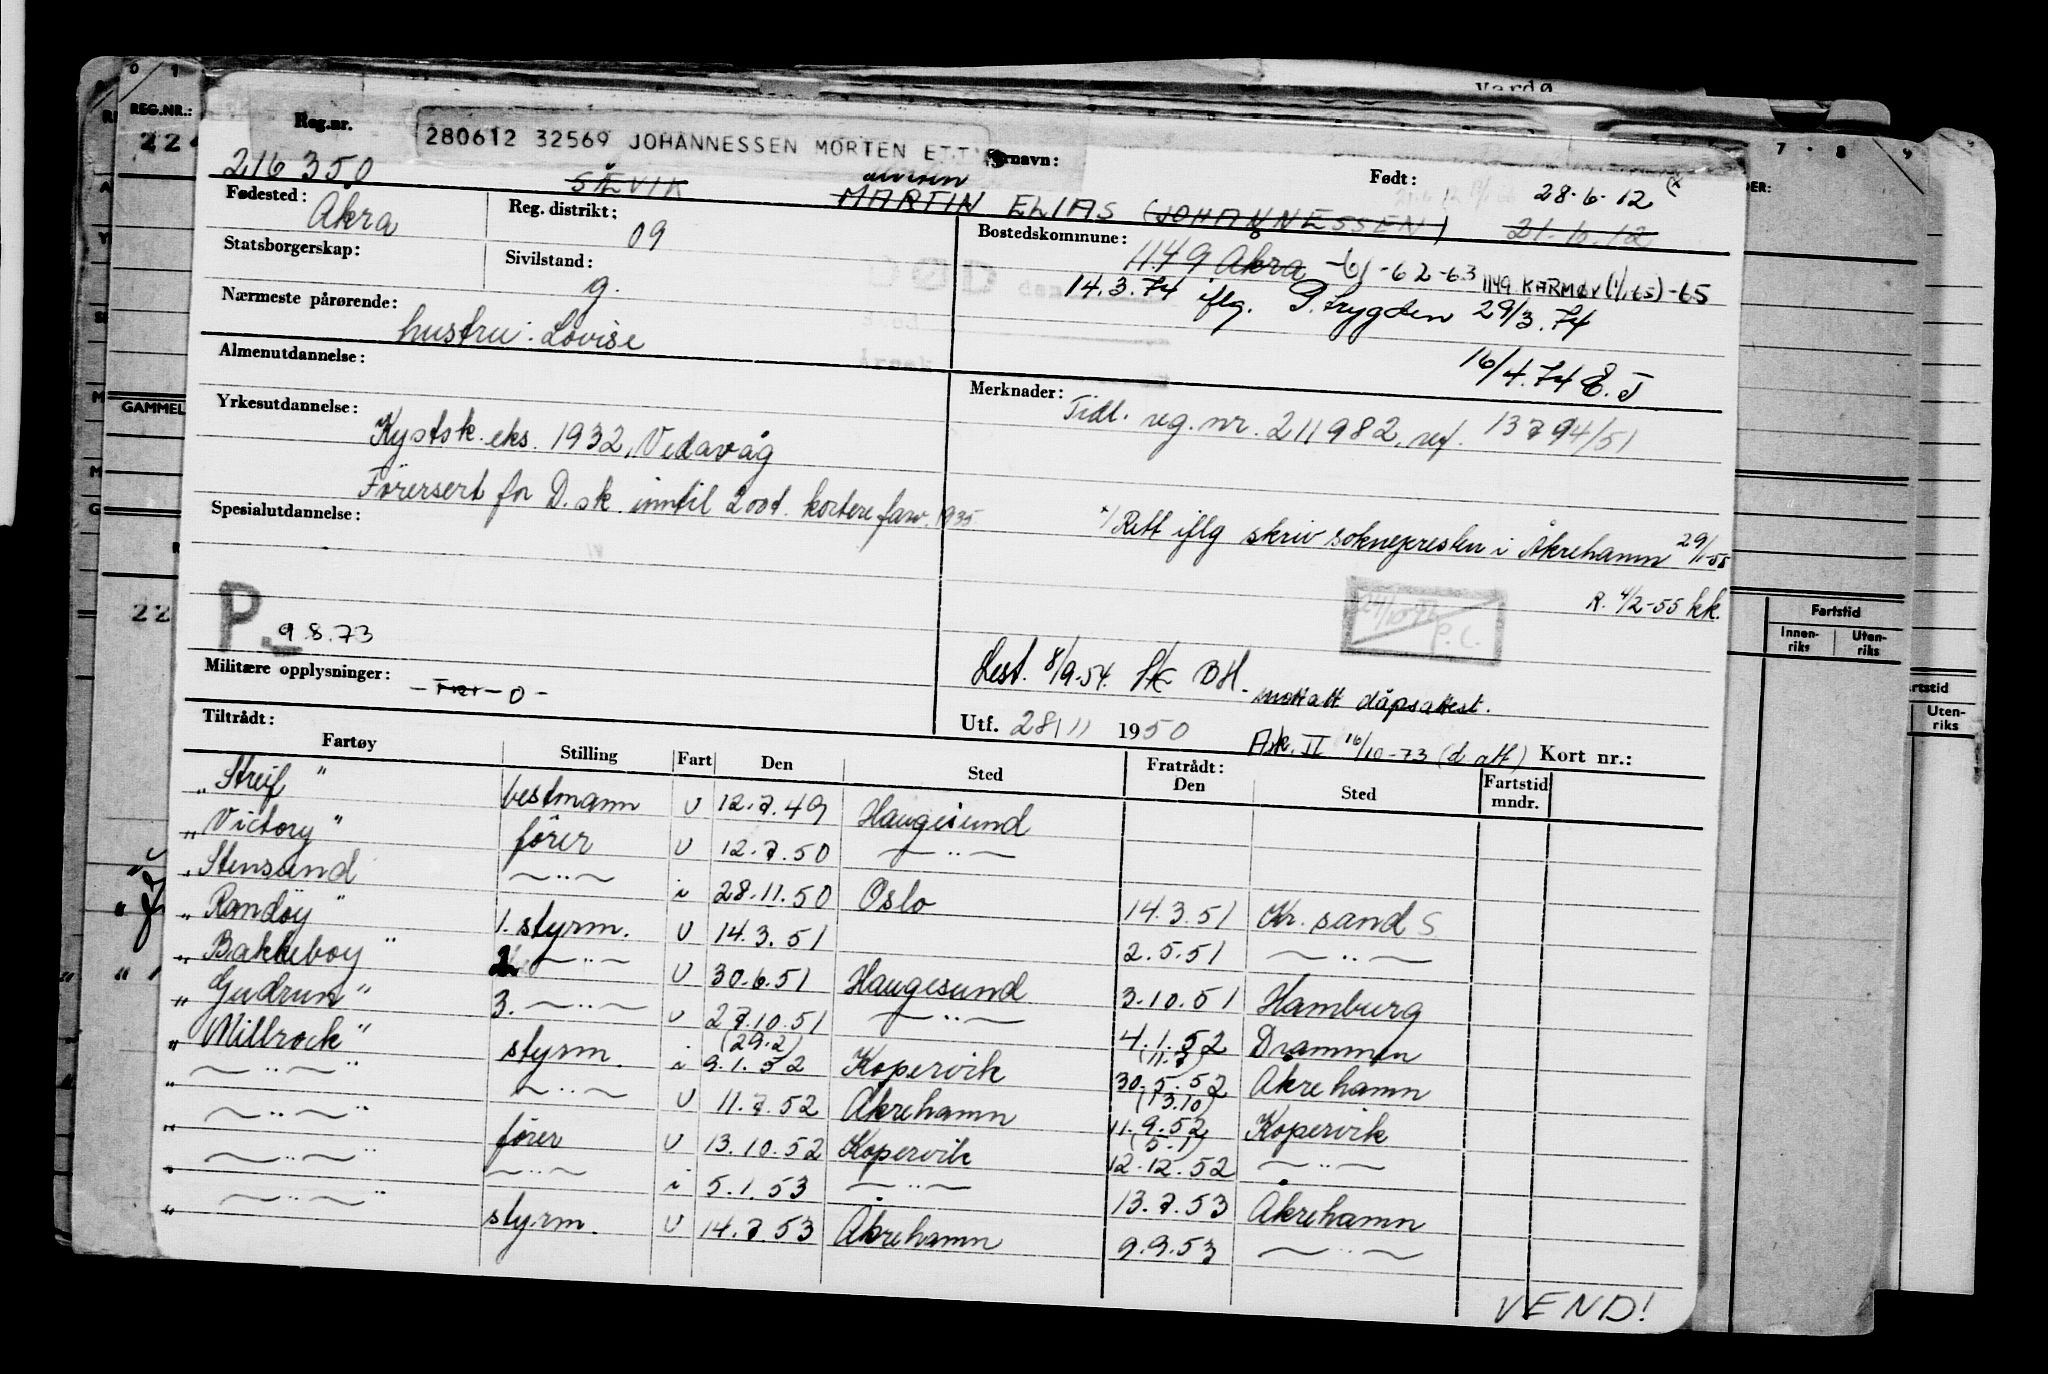 Varda
REG.NR.:
Reg.nr.
280612 32569 JOHANNESSEN MORTEN
Fornavn:
Født:
216350
SÆVIK
MARTIN ELIAS (JOHANNESSEN)
28.6.12 (x
21.6.12
Fødested:
Akra
Reg. distrikt:
09
Bostedskommune:
1149 Akra -61-62-63 1149 KARMØY (1/1.65)-65
Statsborgerskap:
Sivilstand:
g.
DØD
14.3.74 iflg. P. trygden 29/3.74
Nærmeste pårørende:
hustru: Lovise
16/4.74 E.J
Almenutdannelse:
Merknader:
Tidl. reg. nr. 211982, ref. 13794/51
Yrkesutdannelse:
Kystsk. eks. 1932, Vedavåg
Førersert for D.sk. inntil 200t. kortere farv. 1935
Spesialutdannelse:
x/ Rett iflg skriv soknepresten i Åkrehamn 29/1-55
R. 4/2-55 kk.
P. 9.8.73
Militære opplysninger:
-0-
8/9.54. BH. mottatt dåpsattest.
Utf. 28/11 1950
16/10-73 (d att)
Kort nr.:
Tiltrådt:
Fratrådt:
Fartøy Stilling Fart Den Sted Den Sted Fartstid mndr.
"Streif" bestmann U 12.7.49 Haugesund
"Victory" fører U 12.7.50 —"—
"Stensund —"— i 28.11.50 Oslo 14.3.51 Kr. sand S
"Randøy" 1. styrm. U 14.3.51 2.5.51 —"—
"Bakkeboy" 2. —"— U 30.6.51 Haugesund 3.10.51 Hamburg
"Gudrun" 3. —"— U 27.10.51 —"— 4.1.52 Drammen
(29.2) (11.7)
"Millrock" styrm. i 9.1.52 Kopervik 30.5.52 Åkrehamn
(13.10)
"—"—" —"— U 11.7.52 Åkrehamn 11.9.52 Kopervik
(5.1)
"—"—" fører U 13.10.52 Kopervik 12.12.52 —"—
"—"—" —"— i 5.1.53 —"— 13.7.53 Åkrehamn
"—"—" styrm. U 14.7.53 Åkrehamn 9.9.53 —"—
VEND!
GAMMEL
Fartstid
Innen-riks
Uten-riks
Uten-riks